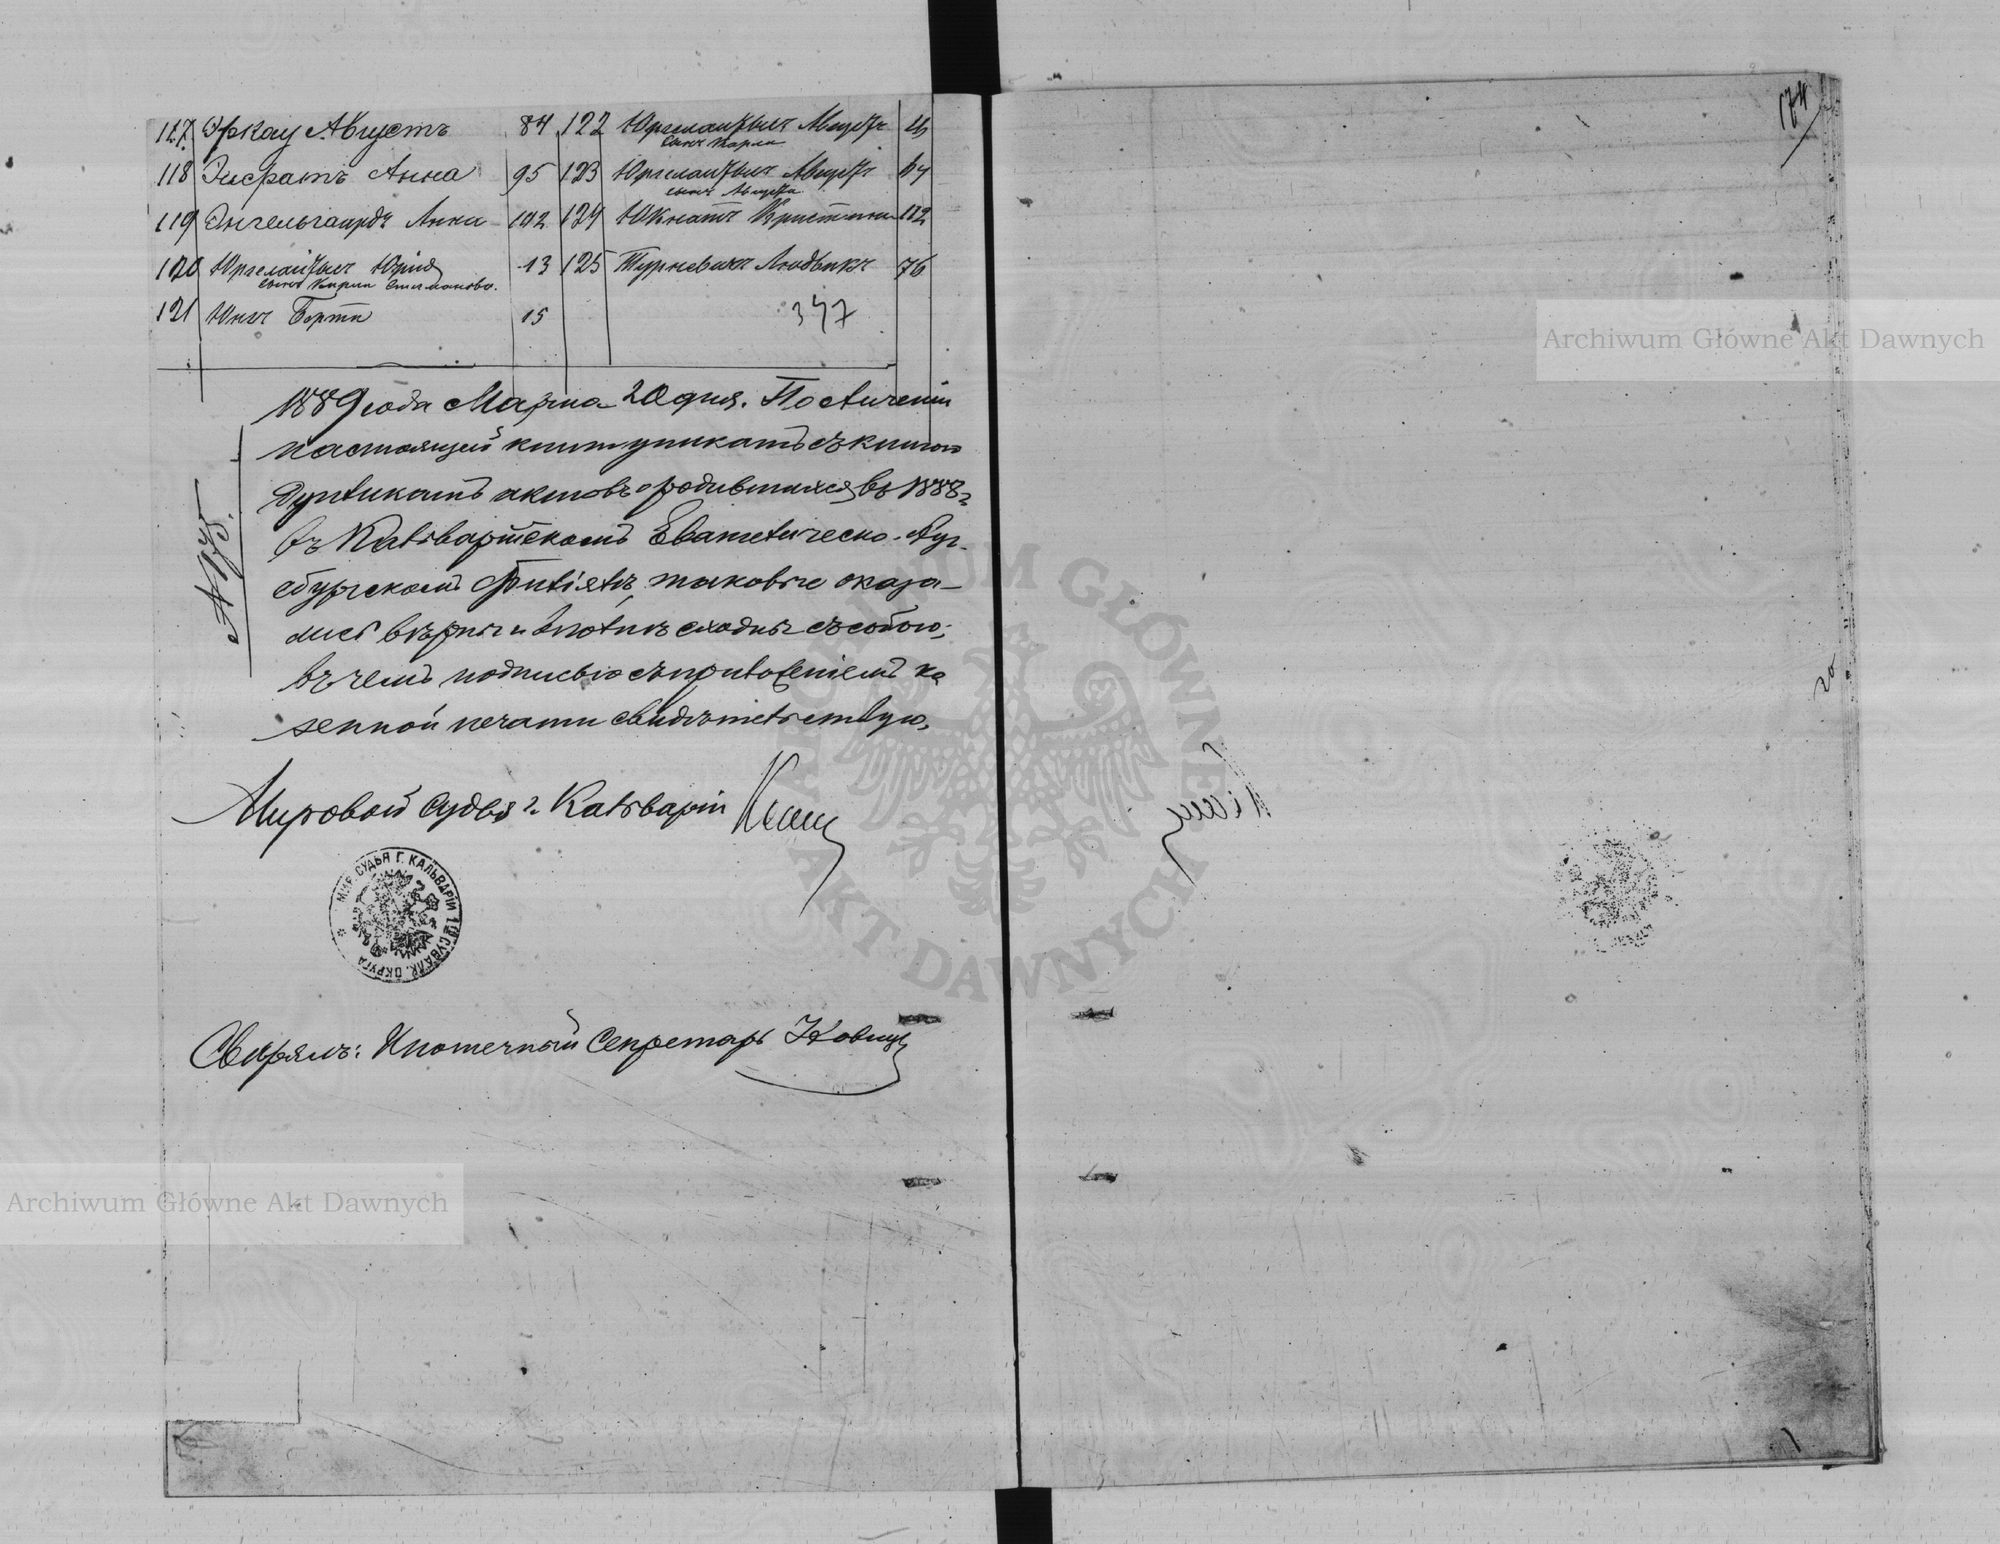 174
117 Эркау Августъ 84 122 Юргелайтысъ Августъ
сынъ Карла
118 Эйсратъ Анна 95 123 Юргелайтысъ Августъ 64
сынъ Августа
119 Энгельгардъ Анна 102 124 Юкнатъ Кристина 112
120 Юргелайтысъ Юрій 13 125 Турневичъ Людвикъ 76
сынъ Карла
121 Юнъ Берта 15 347
1889 года Марта 20 дня. По сличеніи
настоящей книги уникатъ съ книгою
дупликатъ актовъ о родившихся въ 1888 г.
въ Кальварійскомъ Евангелическо-Ауг-
сбургскомъ Филіялѣ, таковые оказа-
лись вѣрны и вполнѣ сходны съ собою,
въ чемъ подписью съ приложеніемъ ка
зенной печати свидѣтельствую,
№ 175.
Мировой Судья г. Кальваріи
МИР. СУДЬЯ Г. КАЛЬВАРІИ 1 го СУВАЛК. ОКРУГА
Свѣрялъ: Ипотечный Секретарь
20
Archiwum Główne Akt Dawnych
Archiwum Główne Akt Dawnych
ARCHIWUM GŁÓWNE
AKT DAWNYCH